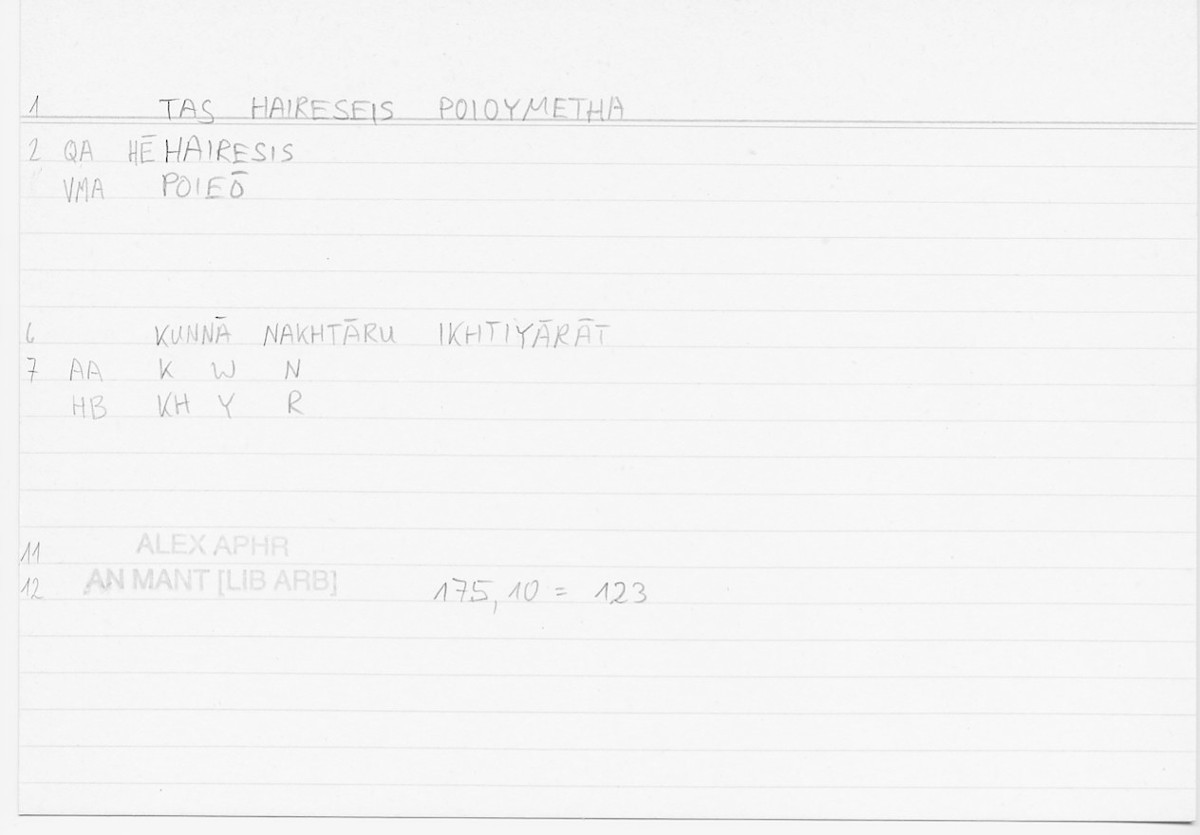 1 TAS HAIRESEIS POIOYMETHA
2 QA HĒ HAIRESIS
VMA POIEŌ
6 KUNNĀ NAKHTĀRU IKHTIYĀRĀT
7 AA K W N
HB KH Y R
11 ALEX APHR
12 AN MANT [LIB ARB] 175,10 = 123